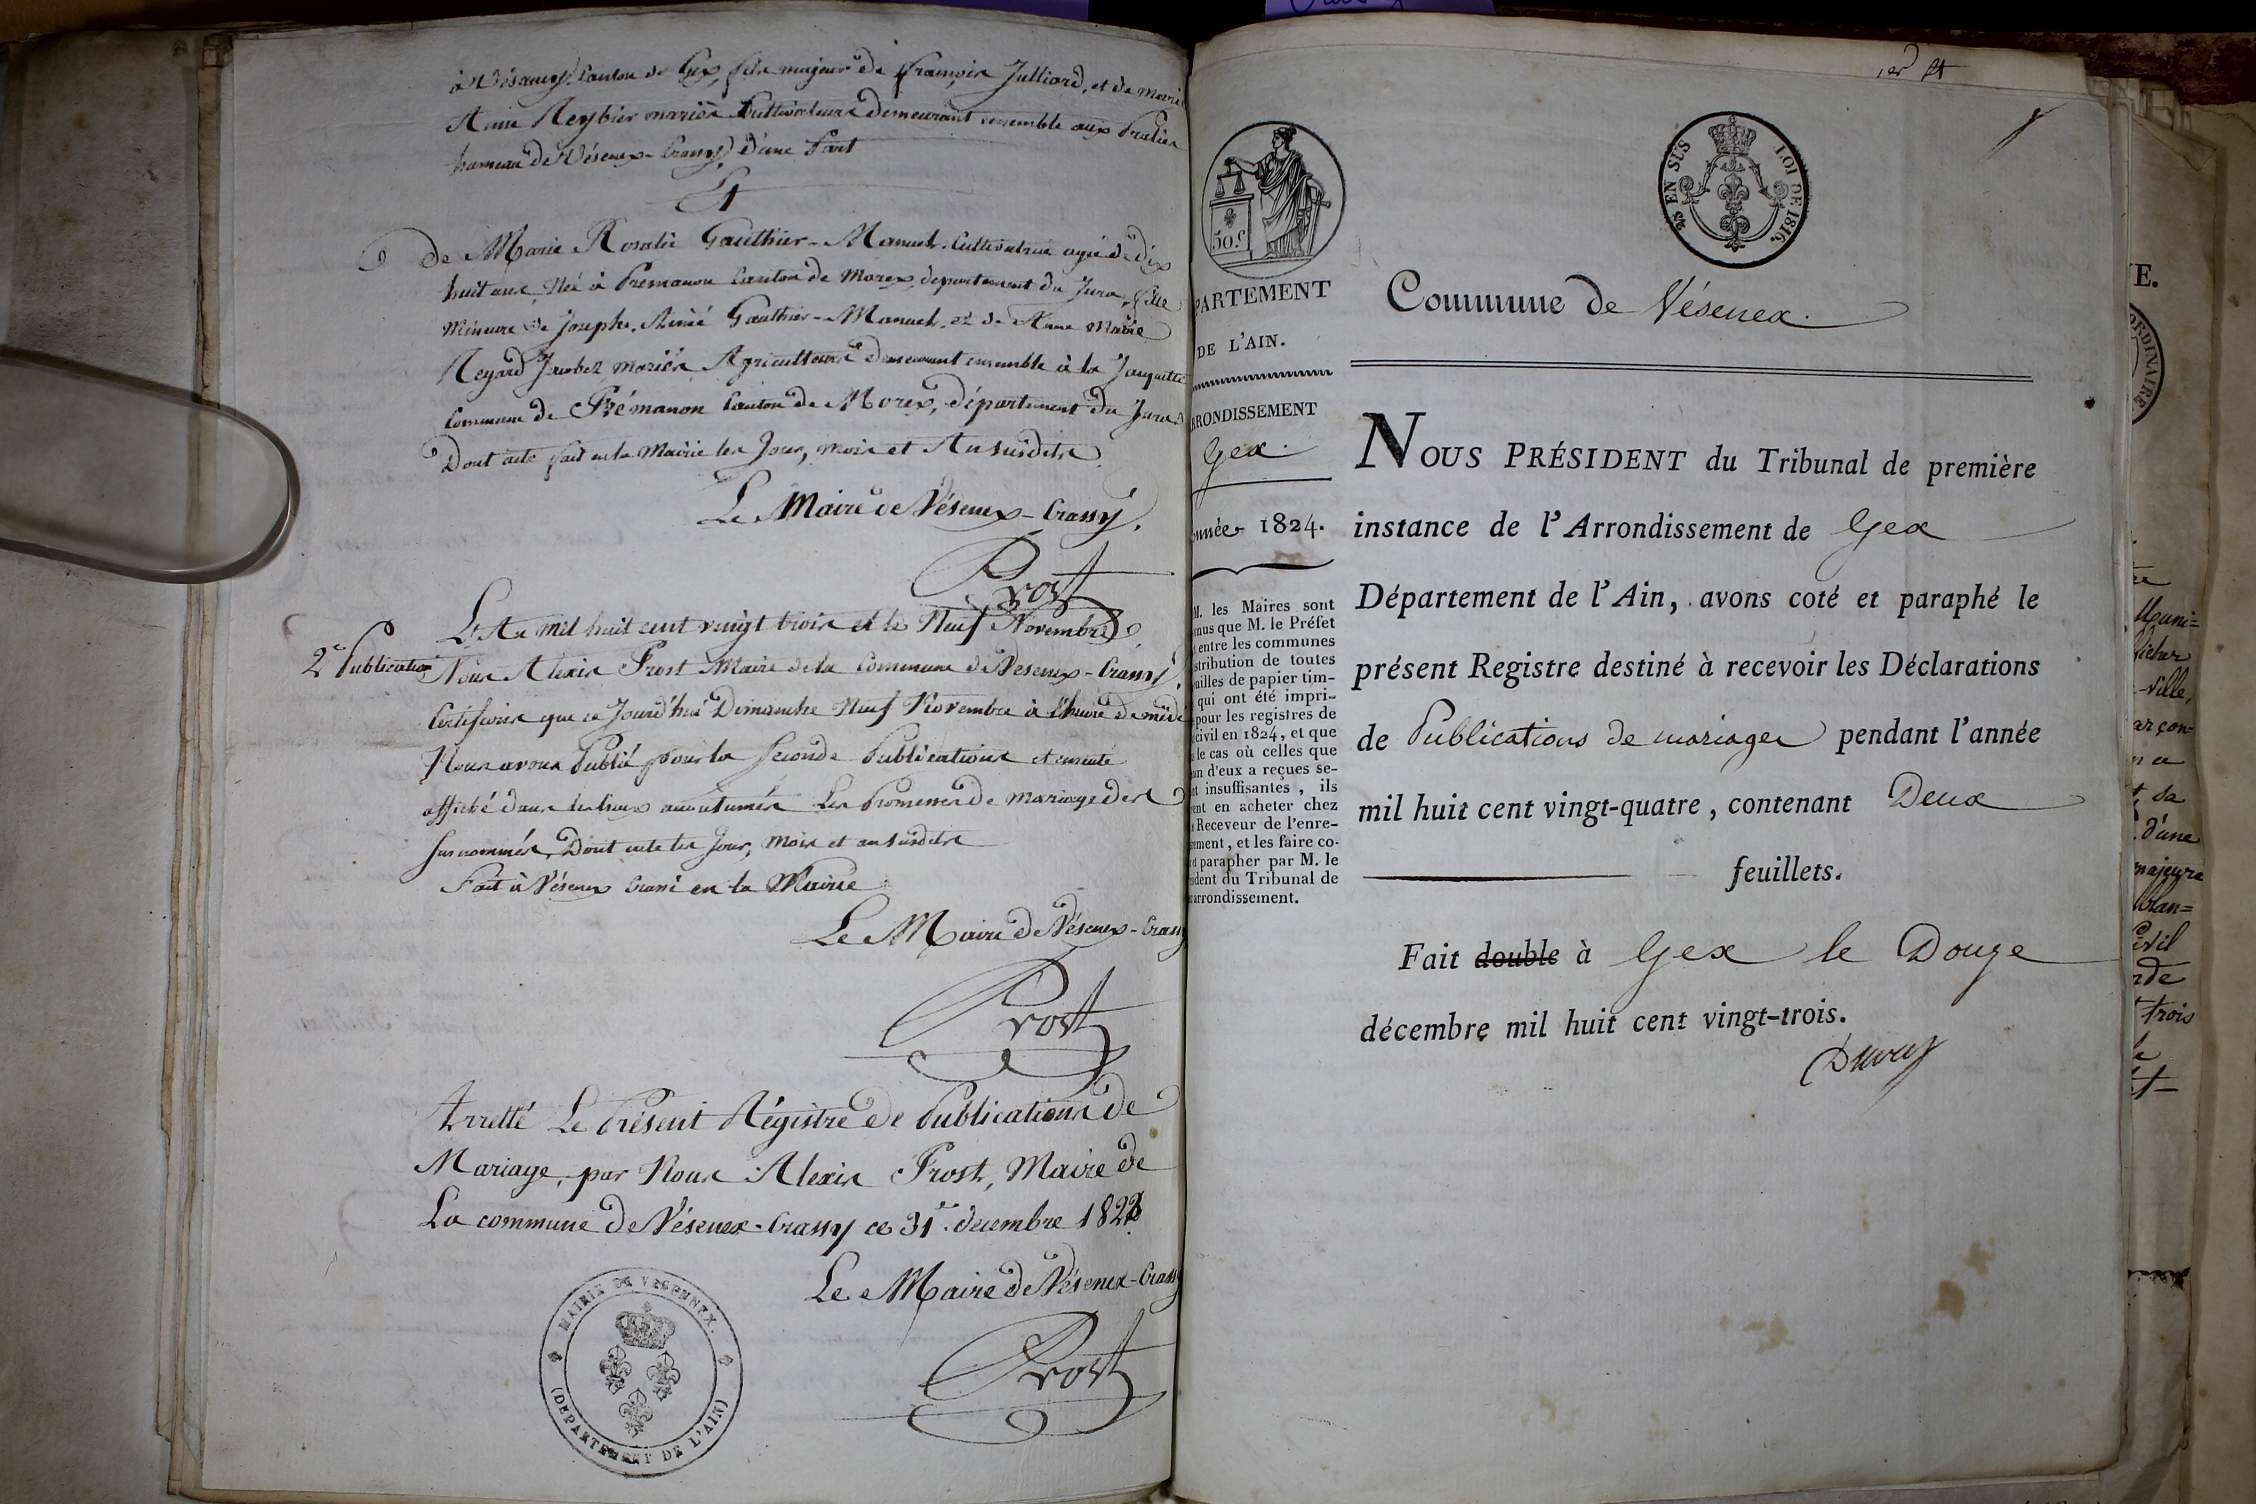 à Vésancy, Canton de Gex, fils majeur de François Julliard, et de Marie
Aimé Reybier mariés Cultivateurs demeurant ensemble aux
hameau de Vésenex-Crassy, d'une Part
Et
De Marie Rosalie Gauthier-Manuel, Cultivatrice agée de dix
huit ans, Née à Prémanon Canton de Morez, département du Jura, fille
Mineure de Joseph Aimé Gauthier-Manuel, et de Anne Marie
Regard Jacobez mariés Agriculteurs demeurant ensemble à la
Commune de Prémanon Canton de Morez, département du Jura
Dont acte fait en la Mairie les Jour, mois et An susdits
Le Maire de Vésenex-Crassy,
Prost
L'An mil huit cent vingt trois et le Neuf Novembre,
2e Publication Nous Alexis Prost Maire de la Commune de Vesenex-Crassy,
Certifions que ce Jourd'hui Dimanche Neuf Novembre à l'heure de midi
Nous avons Publié pour la Seconde Publications et ensuite
affiché dans les lieux accoutumés Les Promesses de Mariage des
Surnommés, Dont acte les Jour, Mois et an susdits
Fait à Vésenex Crassi en la Mairie
Le Maire de Vésenex-Crassy
Prost
Arretté Le Présent Régistre de Publications de
Mariage, par Nous Alexis Prost, Maire de
La commune de Vésenex-Crassy ce 31e décembre
Le Maire de Vésenex-Crassy
Prost
MAIRIE DE VESENNEX.
(DEPARTEMENT DE L'AIN)
1er
50 c
EN SUS
LOI DE 1816.
PARTEMENT
DE L'AIN.
RRONDISSEMENT
Gex.
nnée 1824.
M. les Maires sont
nus que M. le Préfet
entre les communes
stribution de toutes
uilles de papier tim-
qui ont été impri-
pour les registres de
civil en 1824, et que
le cas où celles que
un d'eux a reçues se-
nt insuffisantes, ils
ent en acheter chez
Receveur de l'enre-
ement, et les faire co-
et parapher par M. le
ident du Tribunal de
arrondissement.
Commune de Vésenex.
NOUS PRÉSIDENT du Tribunal de première
instance de l'Arrondissement de Gex
Département de l'Ain, avons coté et paraphé le
présent Registre destiné à recevoir les Déclarations
de Publications de mariages pendant l'année
mil huit cent vingt-quatre, contenant Deux
feuillets.
Fait double à Gex le Douze
décembre mil huit cent vingt-trois.
E.
ORDINAIRE
Muni=
-ville,
arçon
sa
d'une
majeure
trois